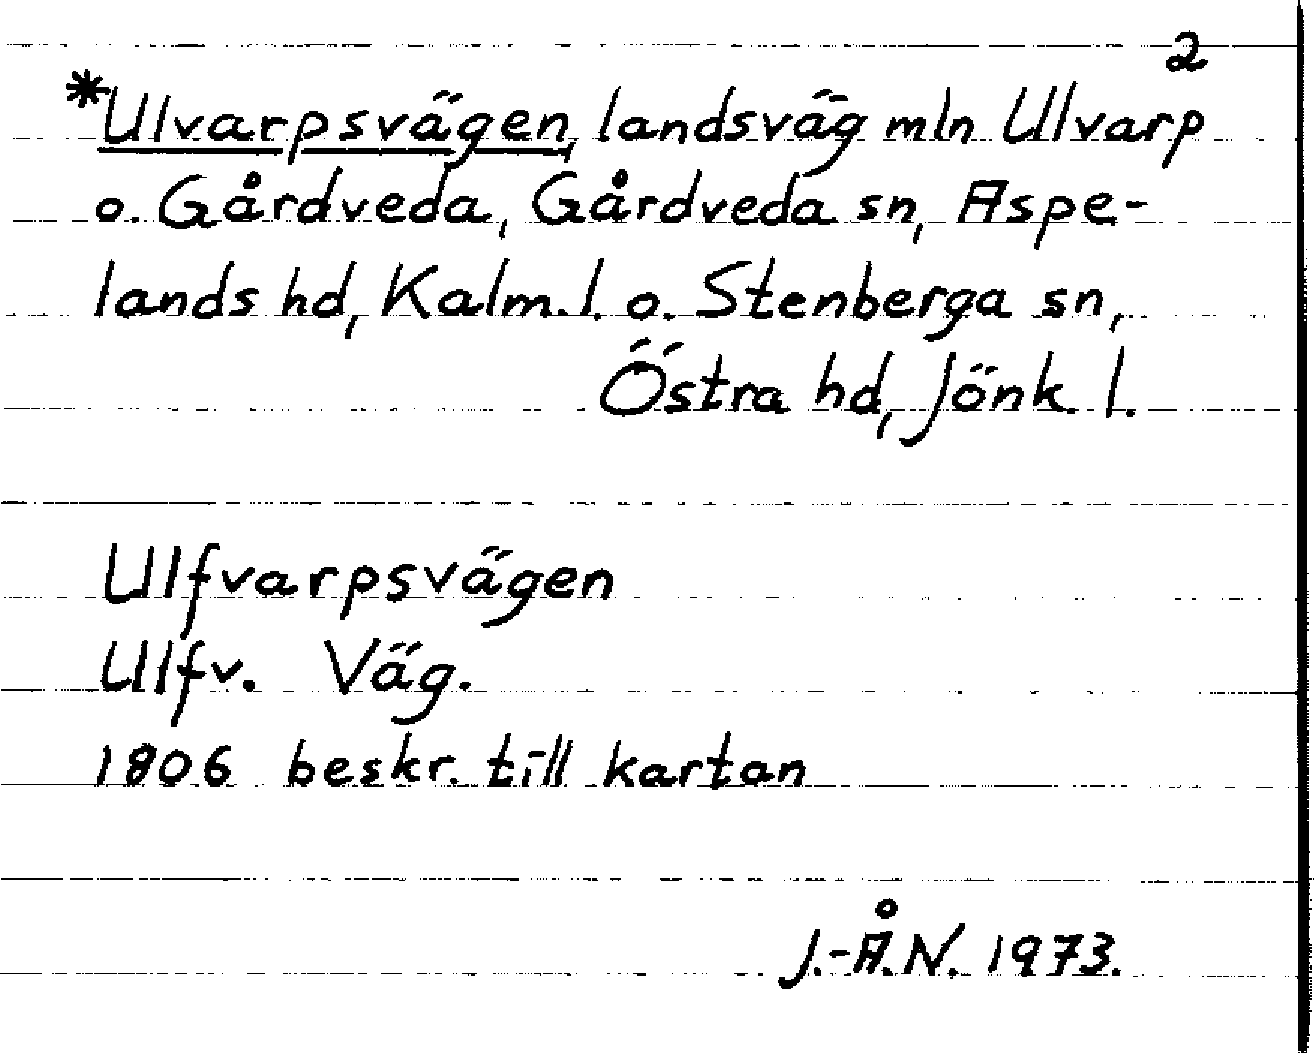 2
*Ulvarpsvägen, landsväg mln Ulvarp
o. Gårdveda, Gårdveda sn, Aspe-
lands hd, Kalm. l. o. Stenberga sn,
Östra hd, Jönk. l.
Ulfvarpsvägen
Ulfv. Väg.
1806 beskr. till kartan
J.-Å.N. 1973.